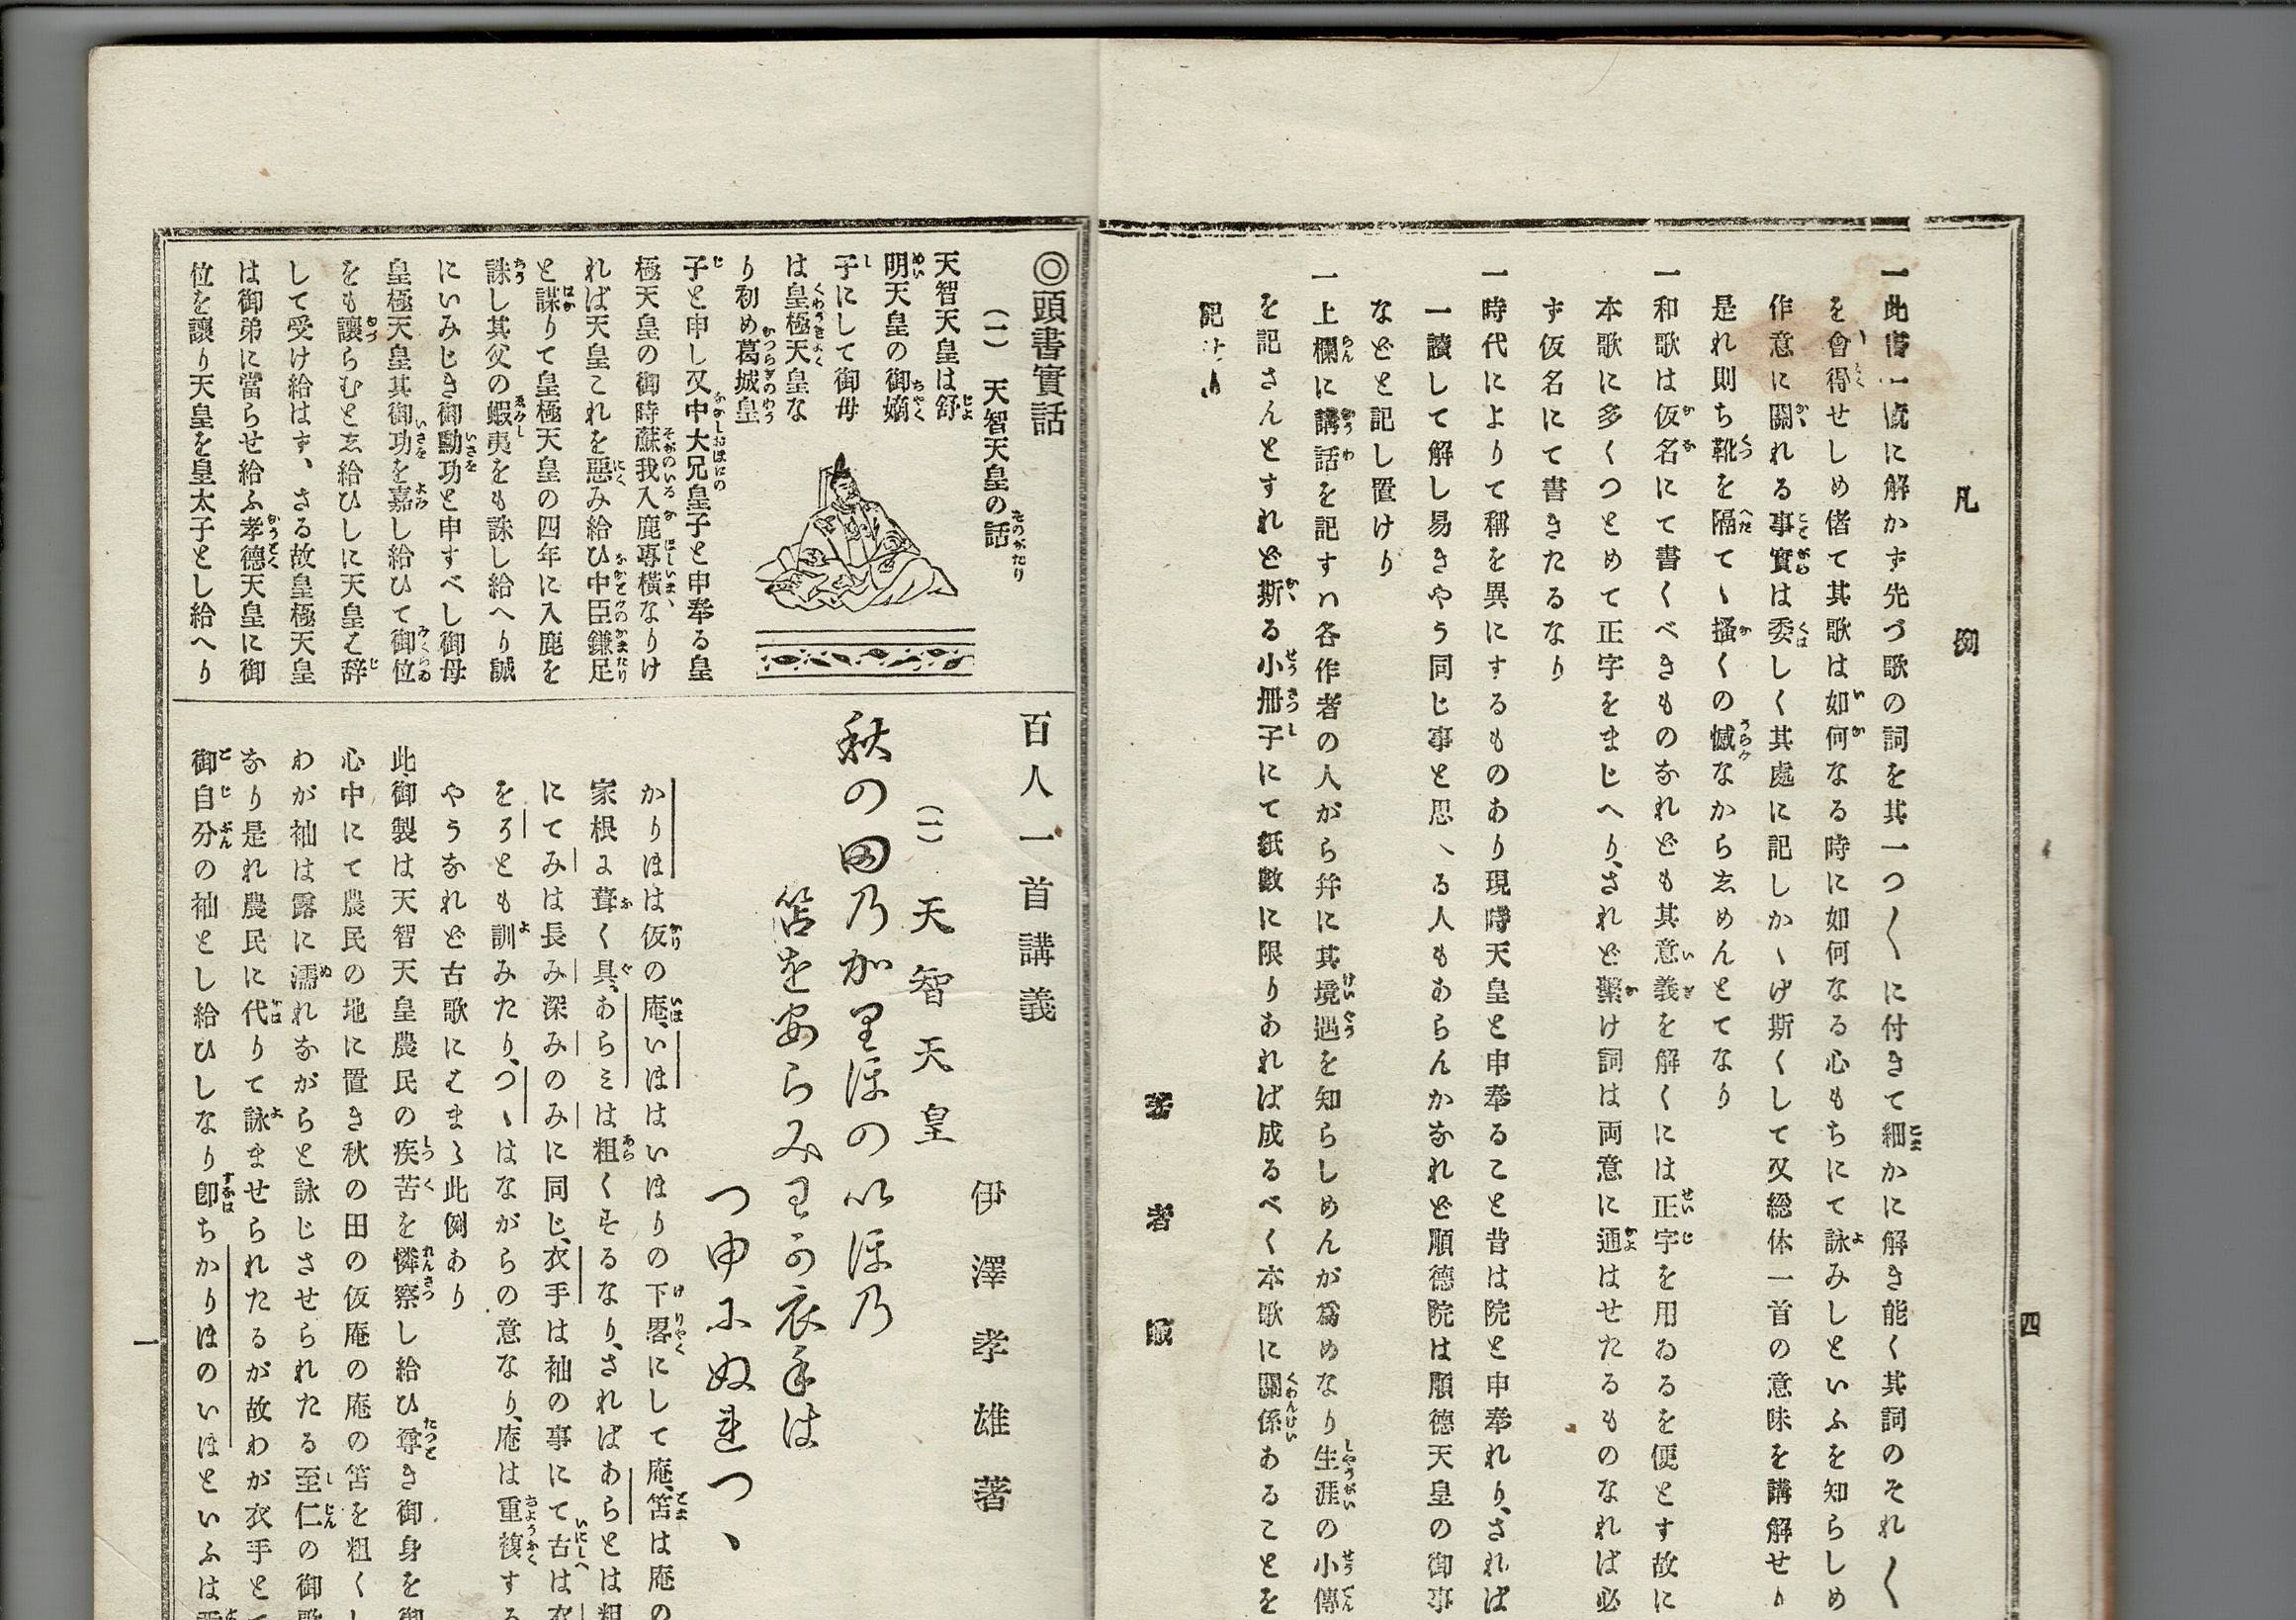 凡例
一此書一概に解かず先づ歌の詞を其一つ〱に付きて細かに解き能く其詞のそれ〱
を會得せしめ偖て其歌は如何なる時に如何なる心もちにて詠みしといふを知らしめ
作意に關れる事實は委しく其處に記しかゝげ斯くして又総体一首の意味を講解せり
是れ則ち靴を隔てゝ搔くの憾なからしめんとてなり
一和歌は仮名にて書くべきものなれども其意義を解くには正字を用ゐるを便とす故に
本歌に多くつとめて正字をまじへり、されど繫け詞は両意に通はせたるものなれば必
ず仮名にて書きたるなり
一時代によりて稱を異にするものあり現時天皇と申奉ること昔は院と申奉れり、されば
一讀して解し易きやう同じ事と思、る人もあらんかなれど順德院は順德天皇の御事
などと記し置けり
一上欄に講話を記すハ各作者の人がら幷に其境遇を知らしめんが爲めなり生涯の小傳
を記さんとすれど斯る小冊子にて紙數に限りあれば成るべく本歌に關係あることを
記
著者
四
◎頭書實話
(一)天智天皇の話
天智天皇は舒
明天皇の御嫡
子にして御母
は皇極天皇な
り初め葛城皇
子と申し又中大兄皇子と申奉る皇
極天皇の御時蘇我入鹿專橫なりけ
れば天皇これを惡み給ひ中臣鎌足
と謀りて皇極天皇の四年に入鹿を
誅し其父の蝦夷をも誅し給へり誠
にいみじき御勳功と申すべし御母
皇極天皇其御功を嘉し給ひて御位
をも讓らむと志給ひしに天皇は辞
して受け給はず、さる故皇極天皇
は御弟に當らせ給ふ孝德天皇に御
位を讓り天皇を皇太子とし給へり
百人一首講義
伊澤孝雄著
(一)天智天皇
秋の田乃加里ほの以ほ乃
笘を安らみわか衣手は
つ由にぬれつゝ
かりほは仮の庵、いほはいほりの下畧にして庵、笘は庵の
家根に葺く具、あらミは粗くするなり、さればあらとは粗
にてみは長み深みのみに同じ、衣手は袖の事にて古は衣
をろとも訓みたり、つゝはながらの意なり、庵は重複する
やうなれど古歌にはまゝ此例あり
此御製は天智天皇農民の疾苦を憐察し給ひ尊き御身を御
心中にて農民の地に置き秋の田の仮庵の庵の笘を粗くし
わが袖は露に濡れながらと詠じさせられたる至仁の御歌
なり是れ農民に代りて詠ませられたるが故わが衣手とて
御自分の袖とし給ひしなり卽ちかりほのいほといふは
一